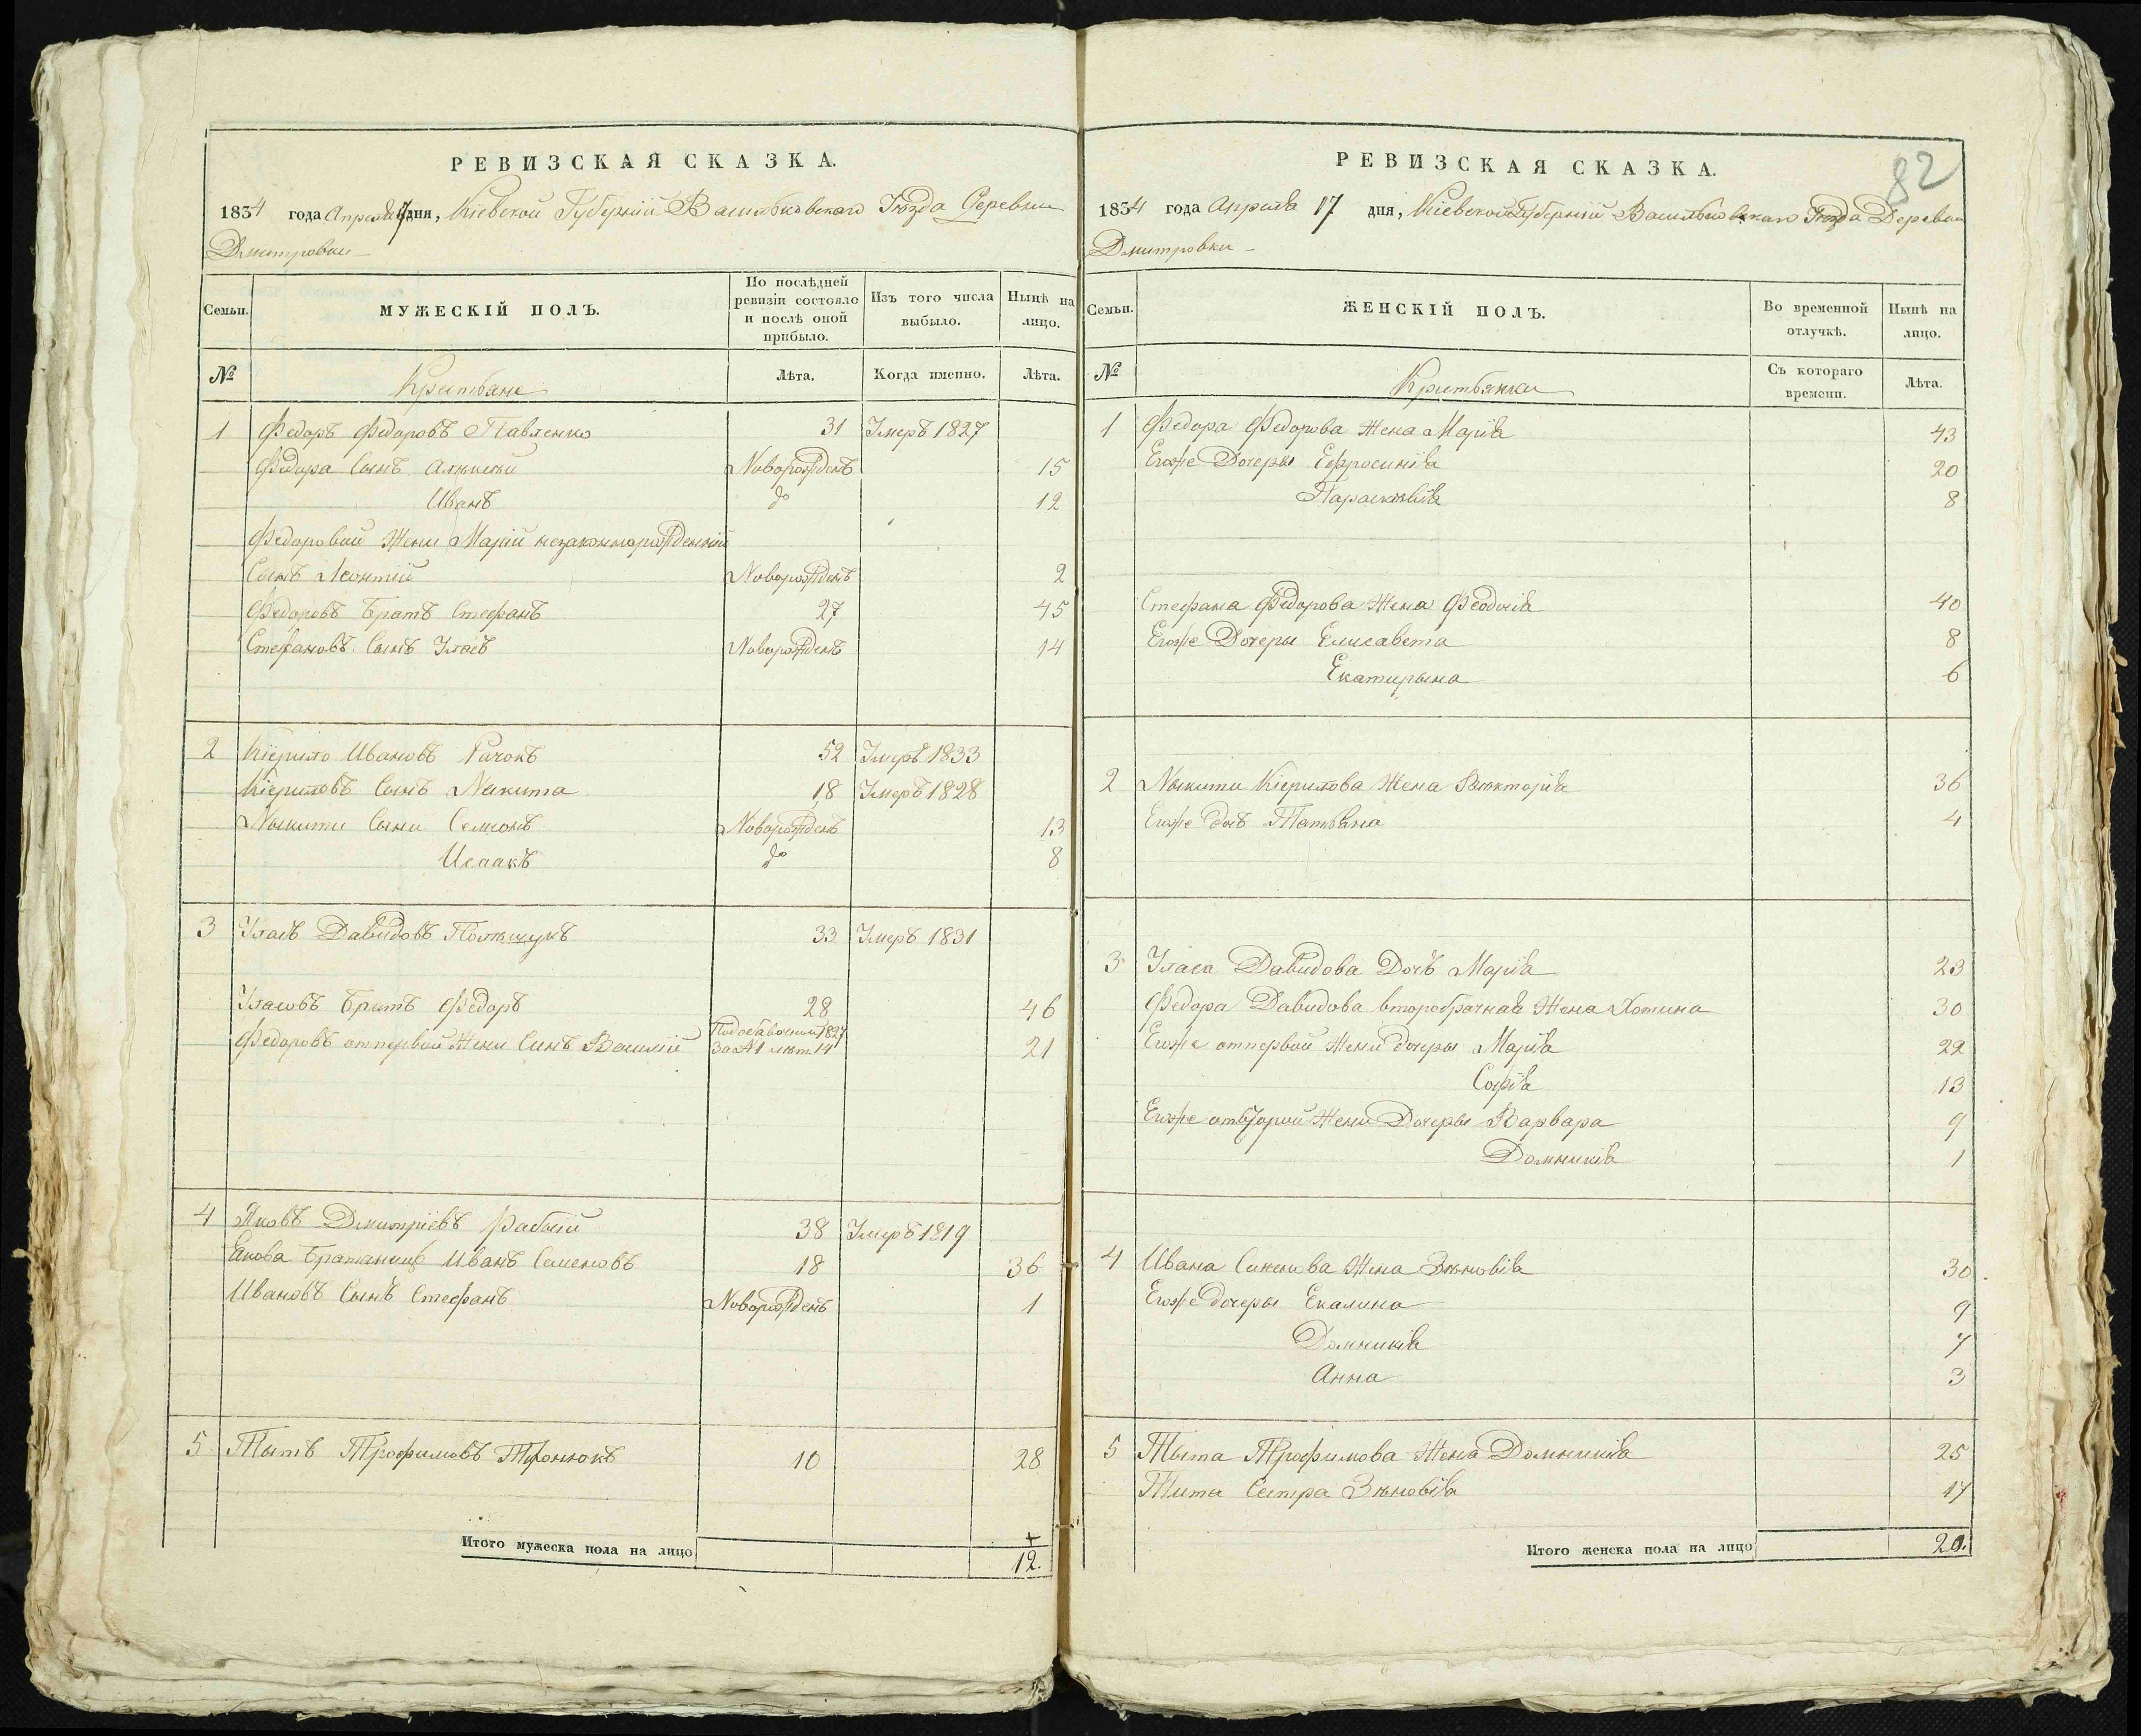 РЕВИЗСКАЯ СКАЗКА.
1834 года Апреля 17 дня, Кіевской Губерніи Васильковскаго Уѣзда Деревни
Дмитровки
Семьи. МУЖЕСКІЙ ПОЛЪ. По послѣдней ревизіи состояло и послѣ оной прибыло. Изъ того числа выбыло. Нынѣ на лицо.
№ Крестьяне Лѣта. Когда именно. Лѣта.
1 Федоръ Федоровъ Павленко 31 Умеръ 1827
Федора Сынъ Алексей Новорожденъ 15
Иванъ до 12
Федоровой Жени Маріи незаконнорожденній
Сынъ Леонтій Новорожденъ 2
Федоровъ Братъ Стефанъ 27 45
Стефановъ Сынъ Уласъ Новорожденъ 14
2 Кирило Ивановъ Рачокъ 52 Умеръ 1833
Кириловъ Сынъ Никита 18 Умеръ 1828
Никити Сыни Семіонъ Новорожденъ 13
Исаакъ до 8
3 Уласъ Давидовъ Полищукъ 33 Умеръ 1831
Уласовъ Братъ Федоръ 28 46
Федоровъ отпервой Жени Синъ Василій Подобавочной 1827 За №1 лѣт 14 21
4 Яковъ Дмитріевъ Рабый 38 Умеръ 1819
Якова Братаничъ Иванъ Семеновъ 18 36
Ивановъ Сынъ Стефанъ Новорожденъ 1
5 Тытъ Трофимовъ 10 28
Итого мужеска пола на лицо 12.
РЕВИЗСКАЯ СКАЗКА.
82
1834 года Априля 17 дня, Кіевской Губерніи Васильковскаго Уѣзда Деревни
Дмитровки
Семьи. ЖЕНСКІЙ ПОЛЪ. Во временной отлучкѣ. Нынѣ на лицо.
№ Крестьянки Съ котораго времени. Лѣта.
1 Федора Федорова Жена Марія 43
Егоже Дочеры Ефросинія 20
Параскевія 8
Стефана Федорова Жена Феодосія 40
Егоже Дочеры Елисавета 8
Екатирына 6
2 Никити Кирилова Жена Викторія 36
Егоже дочь Татьяна 4
3 Уласа Давидова Дочь Марія 23
Федора Давидова второбрачная Жена Хотина 30
Егоже отпервой Жени дочеры Марія 22
Софія 13
Егоже отвторой Жени Дочеры Варвара 9
Домникія 1
4 Ивана Семенова Жена Зеновія 30
Егоже дочеры Екалина 9
Домникія 7
Анна 3
5 Тыта Трофимова Жена Домникія 25
Тита Сестра Зеновія 17
Итого женска пола на лицо 20.